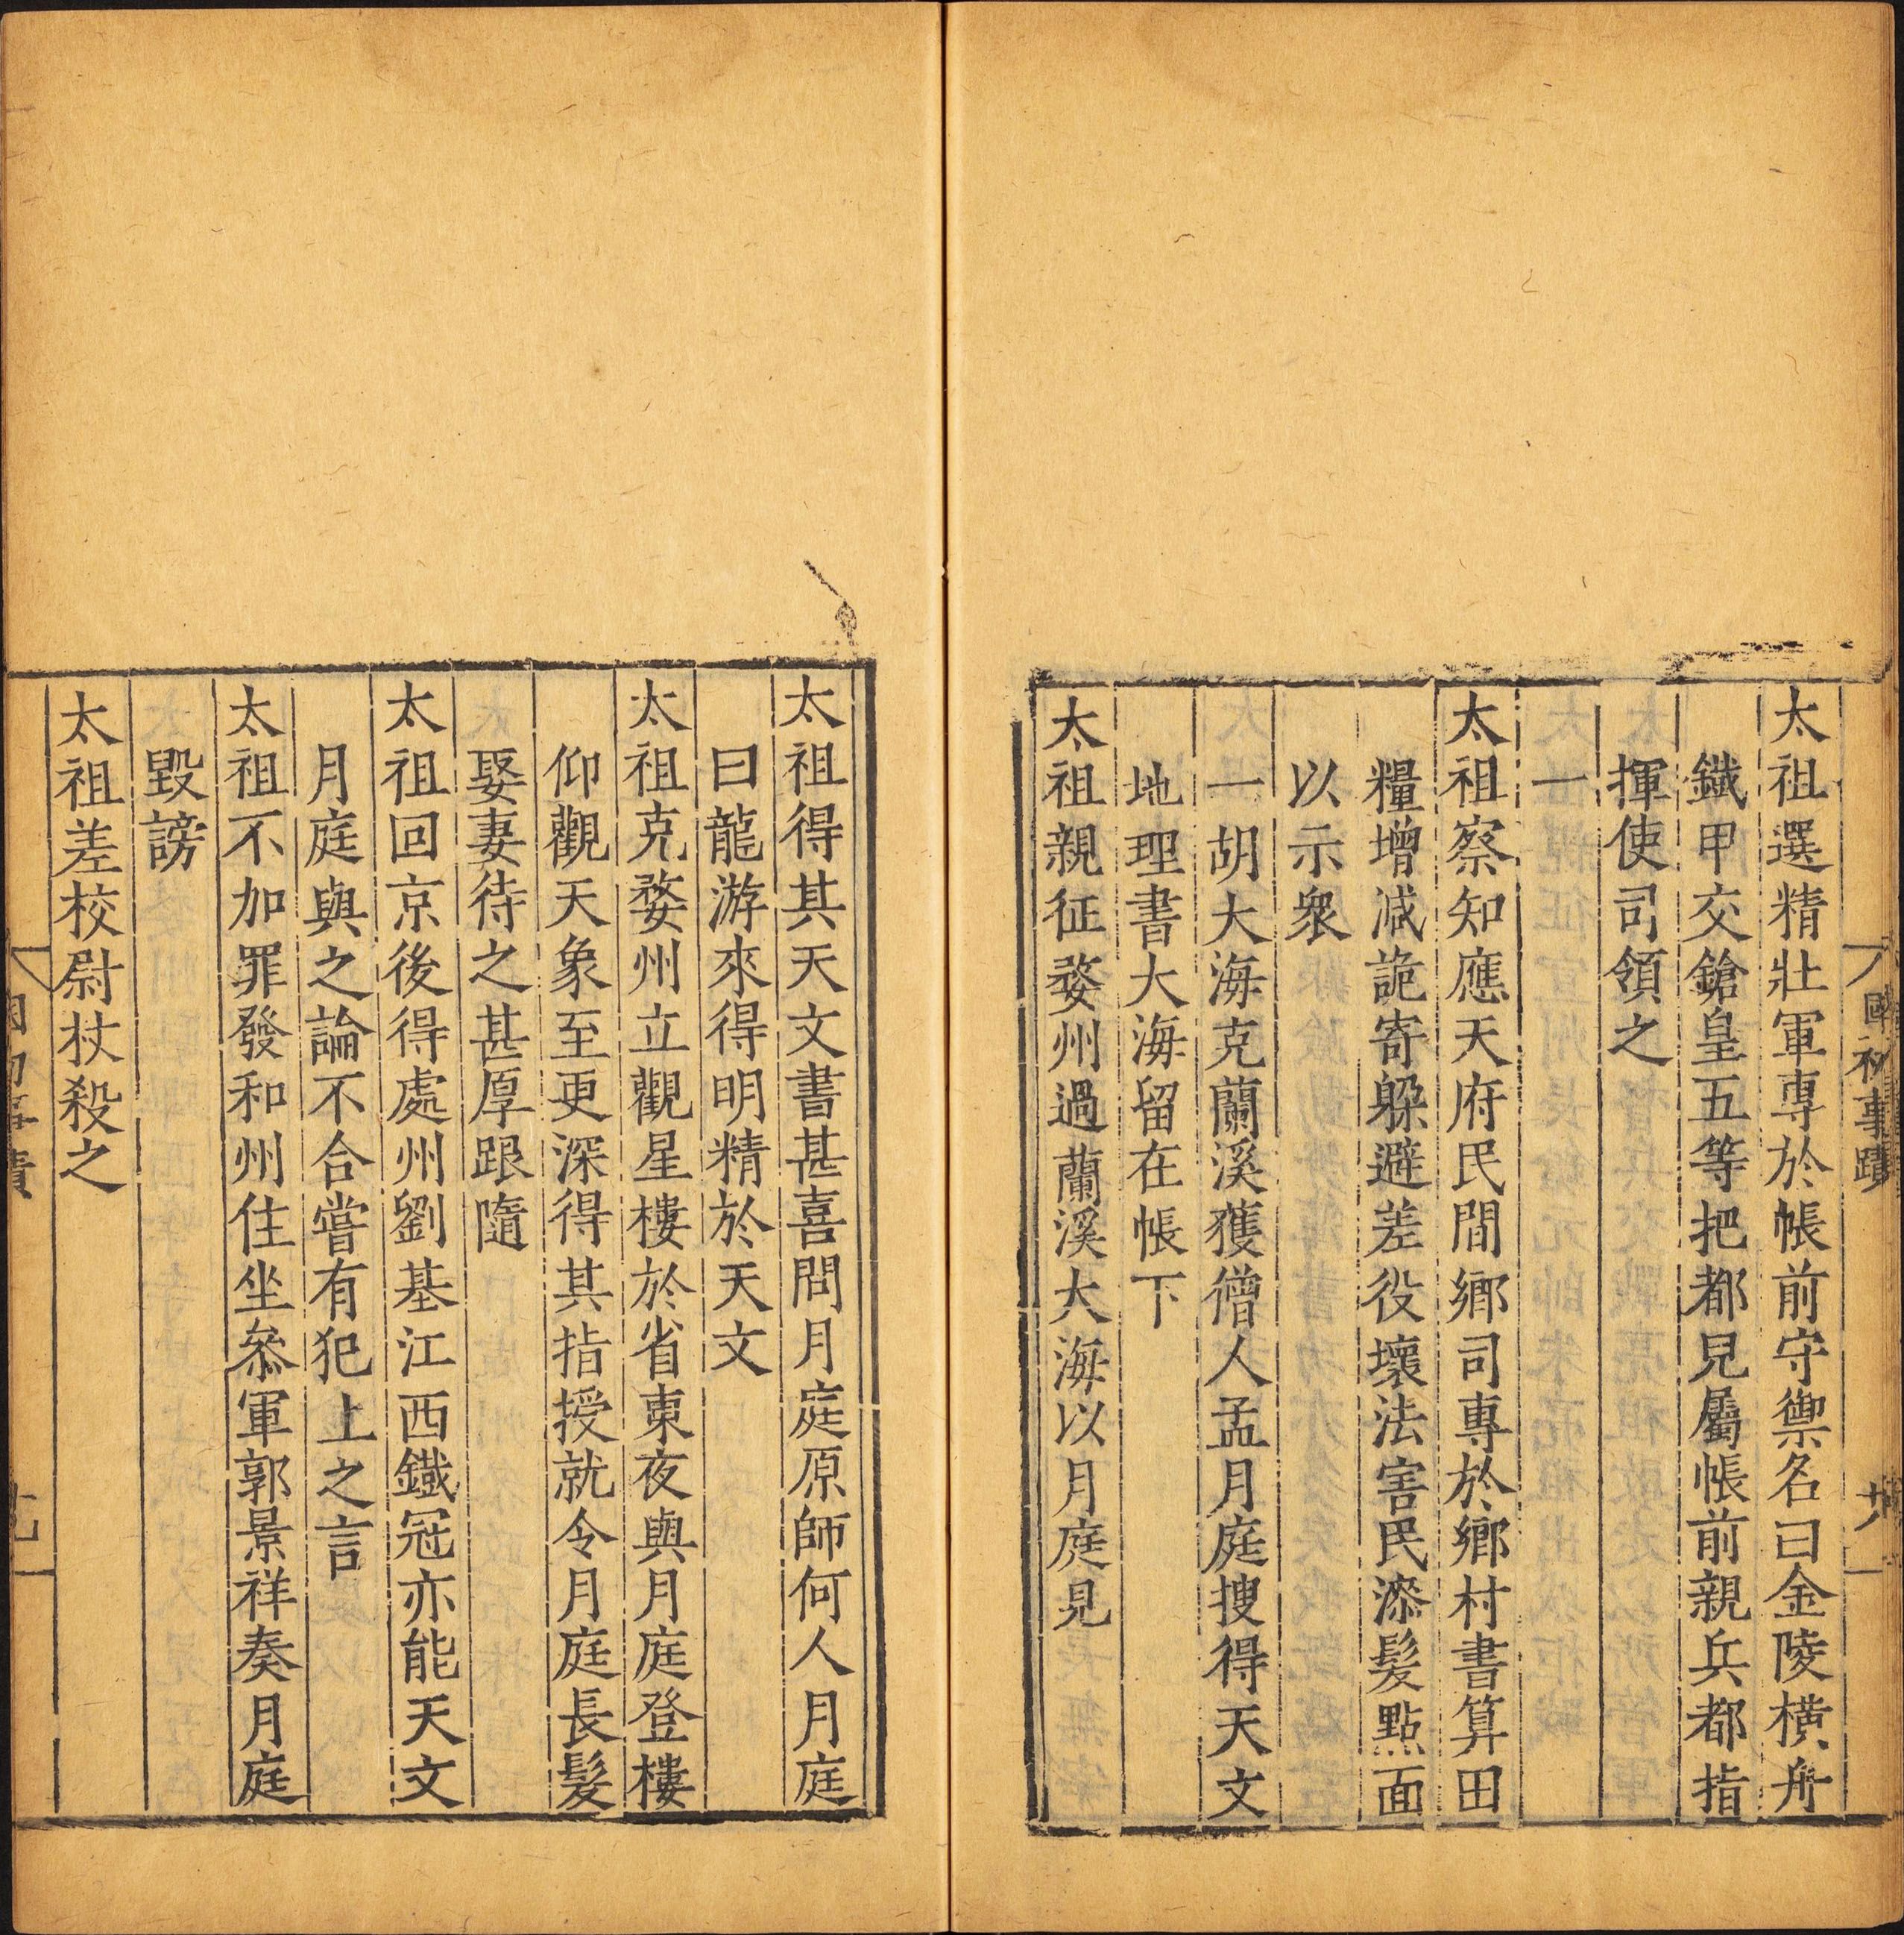 國初事蹟
太祖選精壯軍專於帳前守禦名曰金陵橫舟
鐵甲交鎗皇五等把都兒屬帳前親兵都指
揮使司領之
一
太祖察知應天府民間鄉司專於鄉村書算田
糧增減詭寄躲避差役壞法害民漆髮點面
以示衆
一胡大海克蘭溪獲僧人孟月庭搜得天文
地理書大海留在帳下
太祖親征婺州過蘭溪大海以月庭見
太祖得其天文書甚喜問月庭原師何人月庭
曰龍游來得明精於天文
太祖克婺州立觀星樓於省東夜與月庭登樓
仰觀天象至更深得其指授就令月庭長髮
娶妻待之甚厚跟隨
太祖回京後得處州劉基江西鐵冠亦能天文
月庭與之論不合嘗有犯上之言
太祖不加罪發和州住坐叅軍郭景祥奏月庭
毀謗
太祖差校尉杖殺之